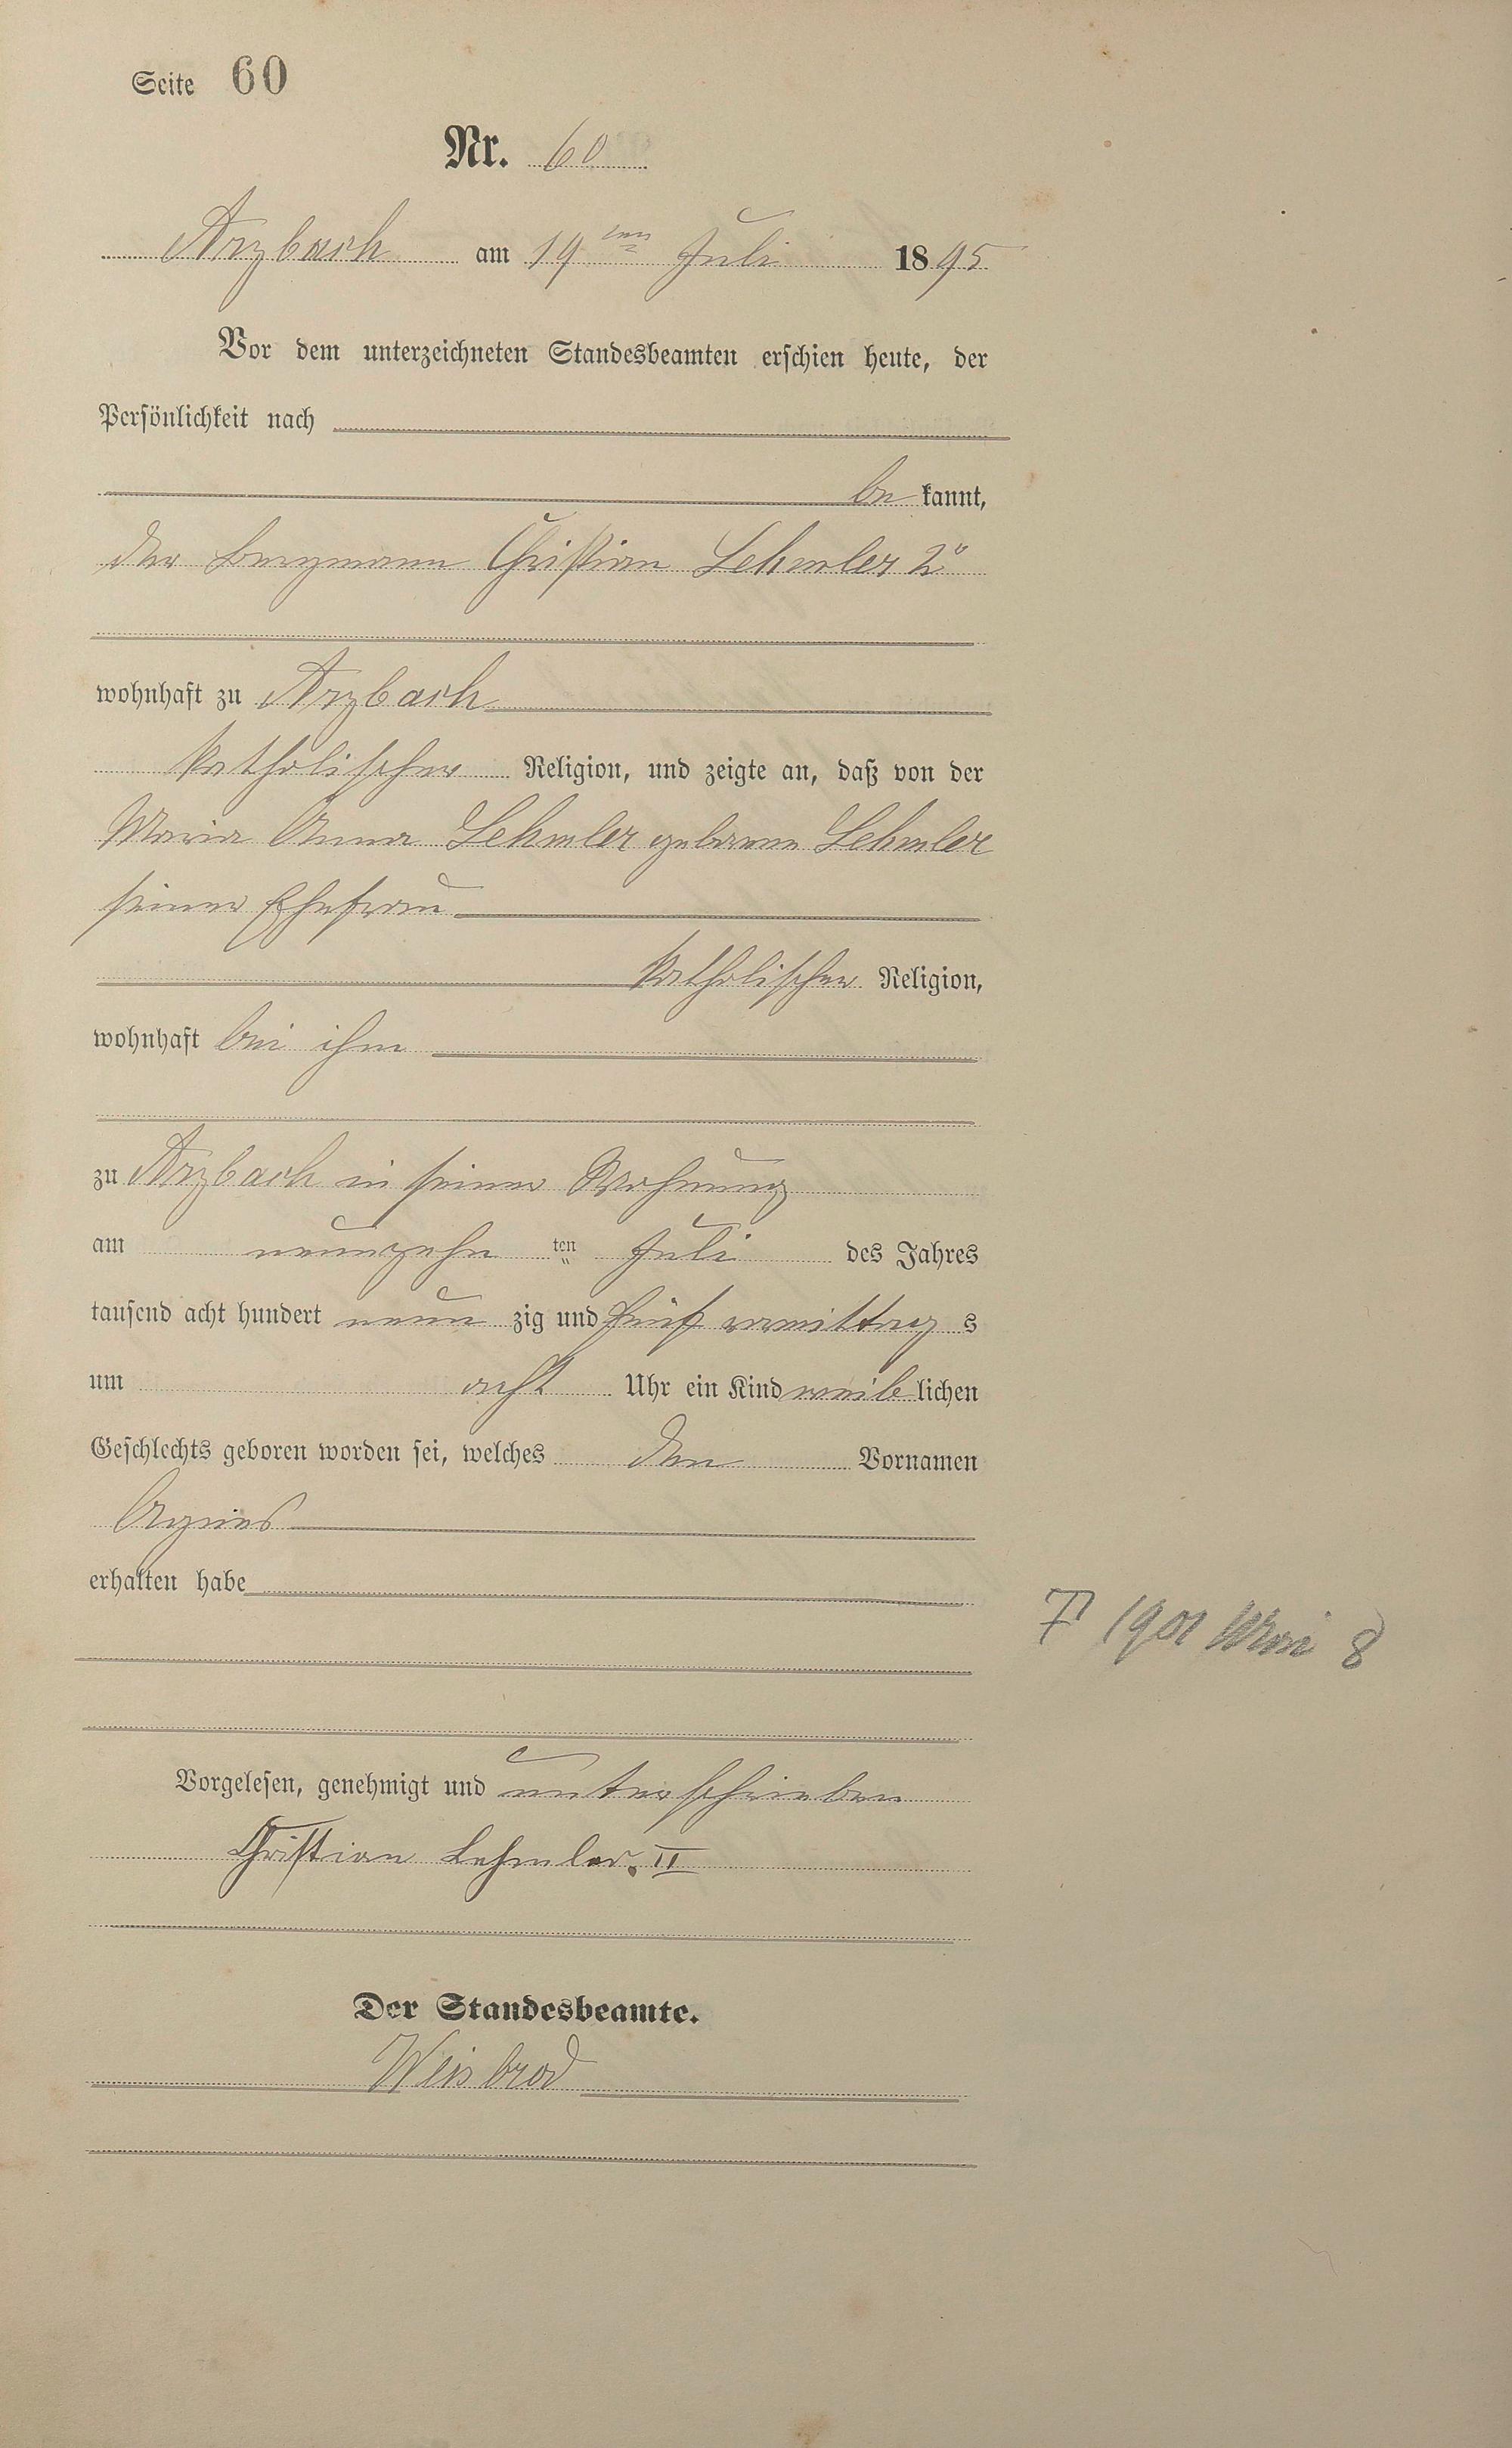 Seite 60
Nr. 60
Arzbach am 19ten Juli 1895
Vor dem unterzeichneten Standesbeamten erschien heute, der
Persönlichkeit nach
be kannt,
der Bergmann Christian Lehmler 2r
wohnhaft zu Arzbach
katholischer Religion, und zeigte an, daß von der
Maria Anna Lehmler geborene Lehmler
seiner Ehefrau
katholischer Religion,
wohnhaft bei ihm
zu Arzbach in seiner Wohnung
am neunzehn ten Juli des Jahres
tausend acht hundert neun zig und fünf vormittag s
um acht Uhr ein Kind weib lichen
Geschlechts geboren worden sei, welches den Vornamen
Agnes
erhalten habe
1901 8
Vorgelesen, genehmigt und unterschrieben
Christian Lehmler. II
Der Standesbeamte.
Weisbrod